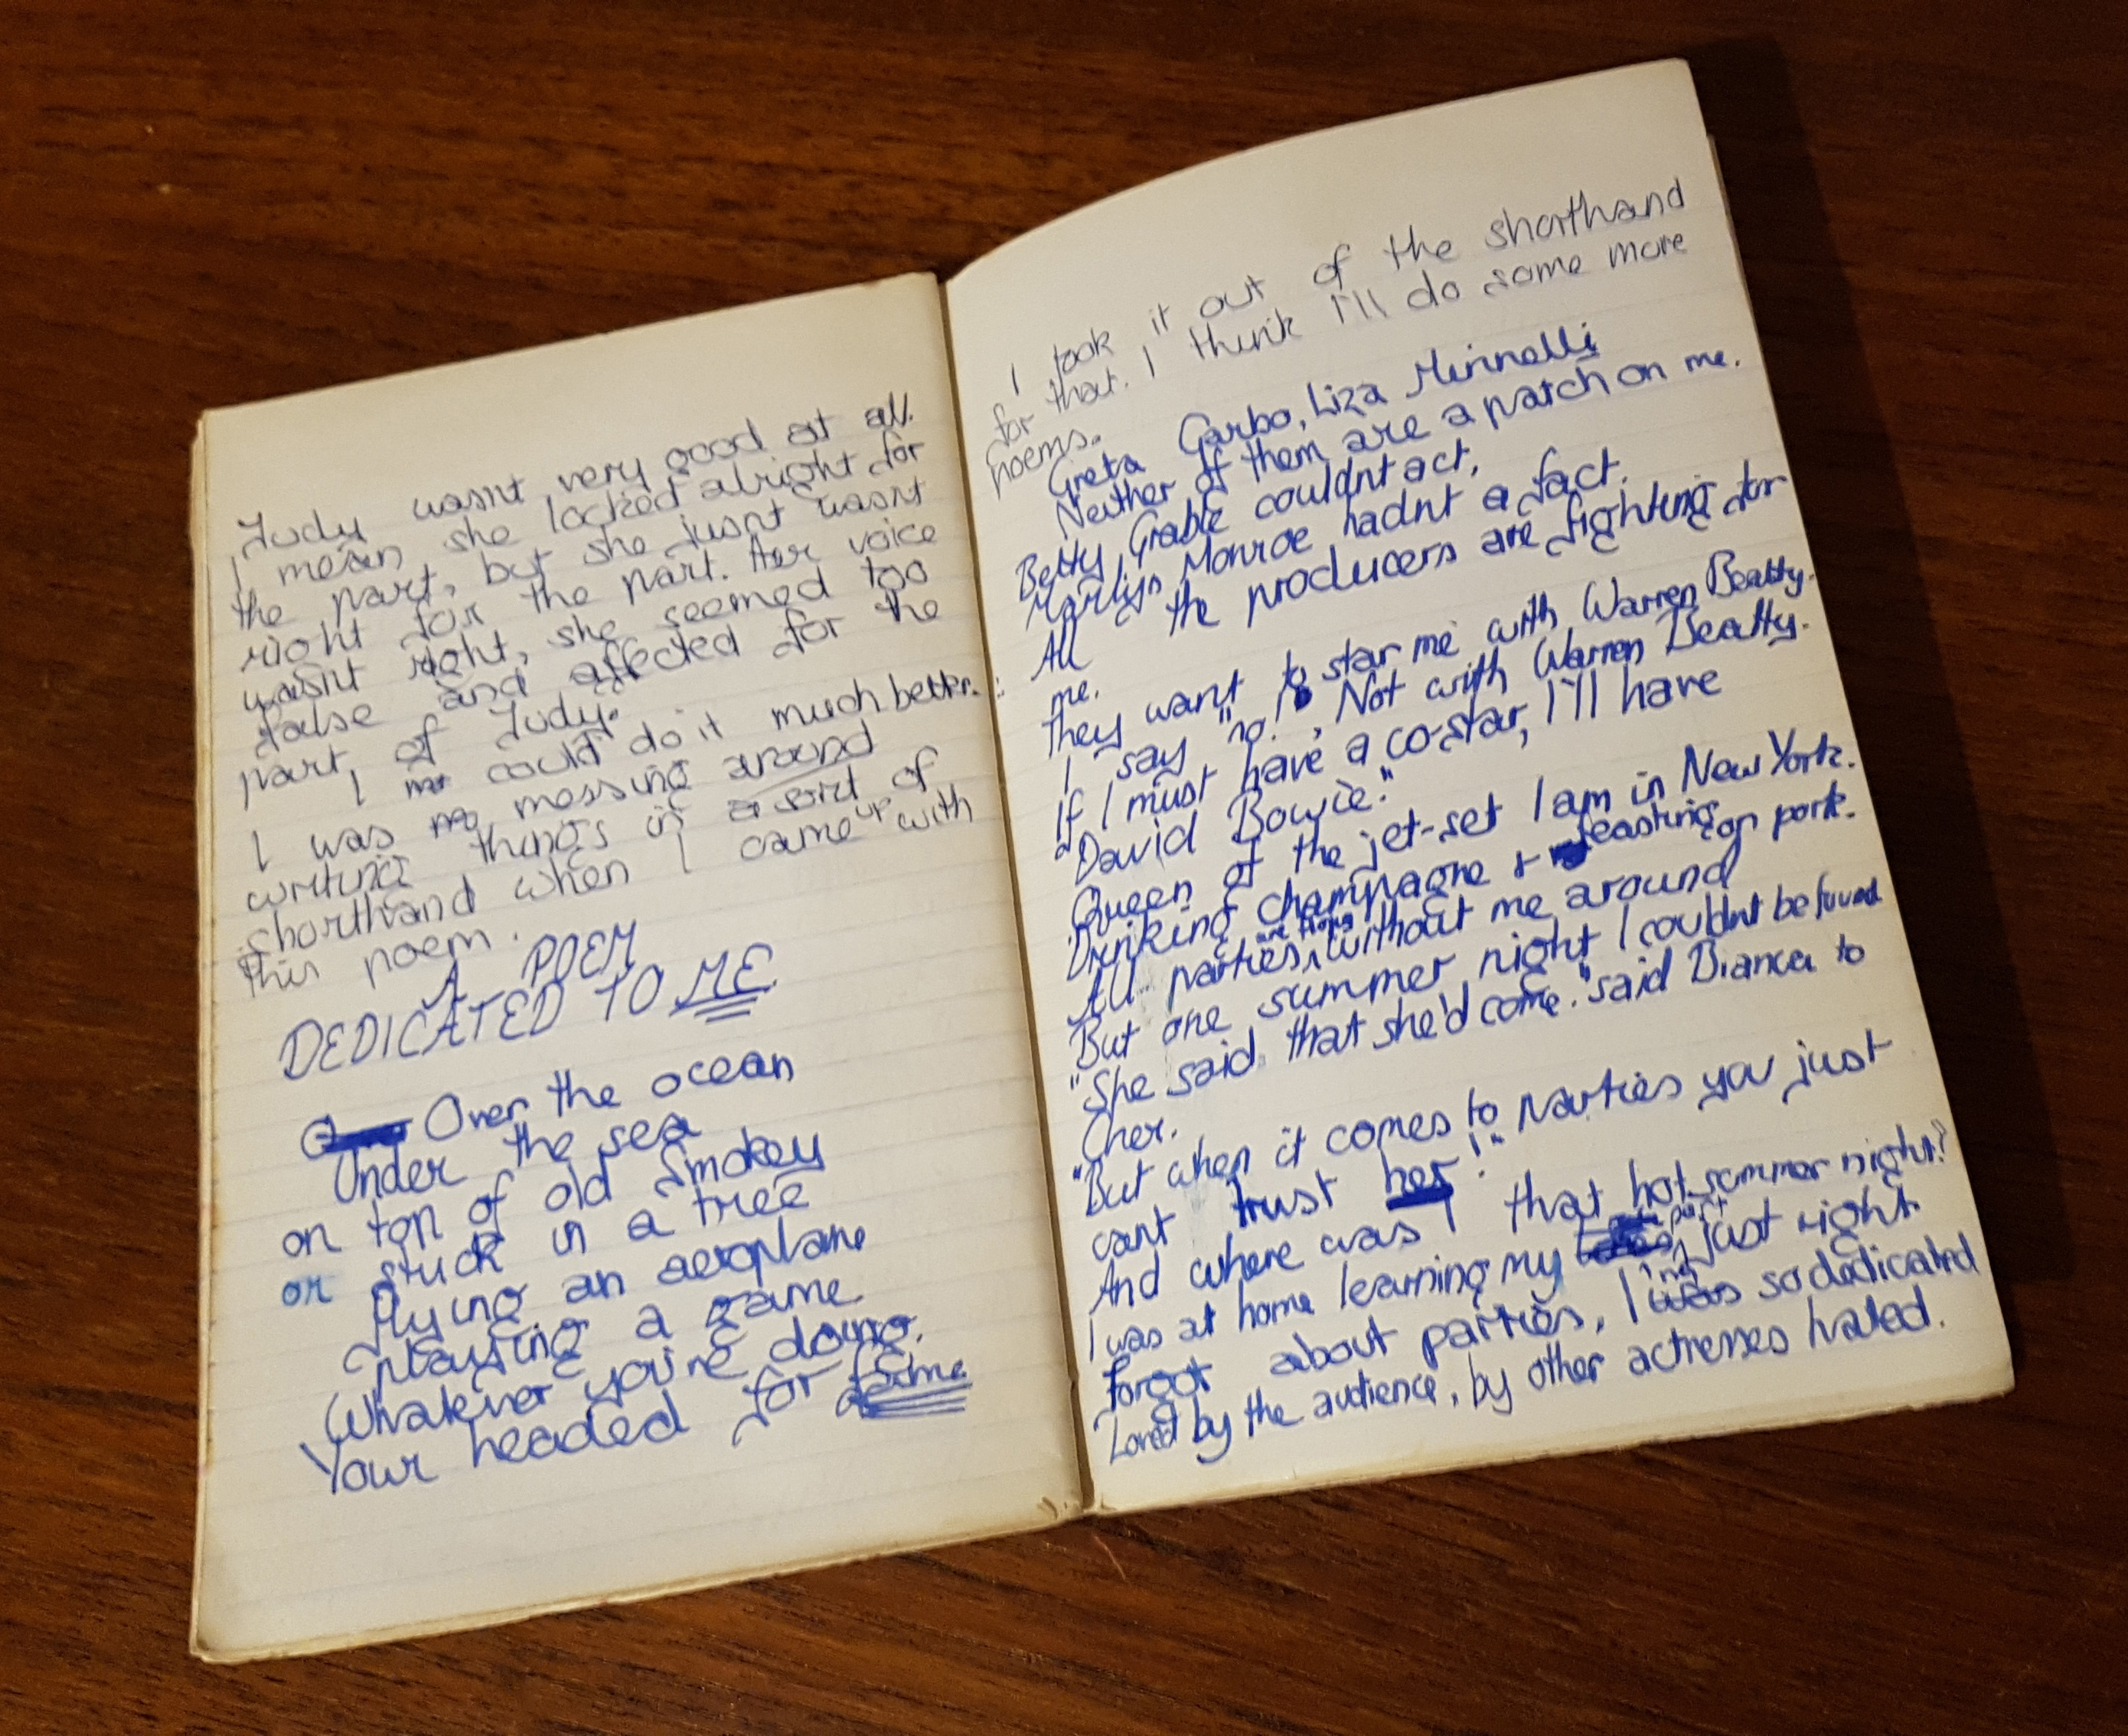 Judy wasnt very good at all.
I mean she looked alright for
the part, but she jusnt wasnt
right for the part. Her voice
wasnt right, she seemed too
false and affected for the
part, of Judy.
I could do it much better.
I was messing around
writing things in a sort of
shorthand when I came up with
this poem.
A POEM
DEDICATED TO ME
Over the ocean
Under the sea
on top of old Smokey
or stuck in a tree
flying an aeroplane
playing a game
Whatever you're doing.
Your headed for fame
I took it out of the shorthand
for that. I think I'll do some more
poems.
Greta Garbo, Liza Minnelli
Neither of them are a patch on me.
Betty Grable couldnt act,
Marlyn Monroe hadnt a fact.
All the producers are fighting for
me.
They want to star me with Warren Beatty.
I say "no!, Not with Warren Beatty.
If I must have a co-star, I'll have
David Bowie."
Queen of the jet-set I am in New York.
Drinking champagne & feasting on pork.
All parties are flops without me around
But one summer night I couldnt be found
"She said that she'd come." said Bianca to
Cher.
"But when it comes to parties you just
cant trust her!"
And where was I that hot summer night?
I was at home learning my part just right.
forgot about parties, I'm so dedicated
Loved by the audience, by other actresses hated.